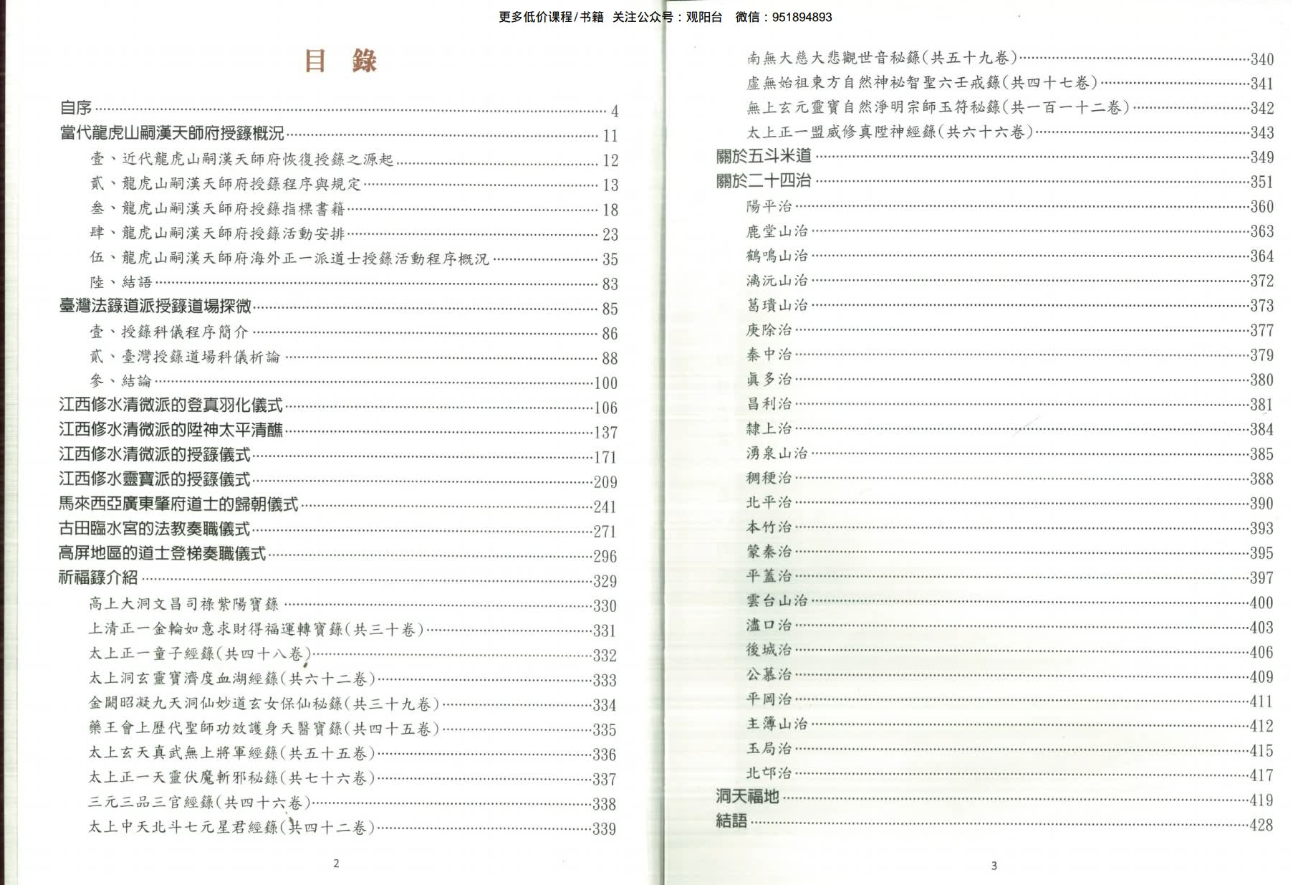 更多低价课程/书籍 关注公众号：观阳台 微信：951894893
目錄
自序 4
當代龍虎山嗣漢天師府授籙概況 11
壹、近代龍虎山嗣漢天師府恢復授籙之源起 12
貳、龍虎山嗣漢天師府授籙程序與規定 13
叁、龍虎山嗣漢天師府授籙指標書籍 18
肆、龍虎山嗣漢天師府授籙活動安排 23
伍、龍虎山嗣漢天師府海外正一派道士授籙活動程序概況 35
陸、結語 83
臺灣法籙道派授籙道場探微 85
壹、授籙科儀程序簡介 86
貳、臺灣授籙道場科儀析論 88
參、結論 100
江西修水清微派的登真羽化儀式 106
江西修水清微派的陞神太平清醮 137
江西修水清微派的授籙儀式 171
江西修水靈寶派的授籙儀式 209
馬來西亞廣東肇府道士的歸朝儀式 241
古田臨水宮的法教奏職儀式 271
高屏地區的道士登梯奏職儀式 296
祈福籙介紹 329
高上大洞文昌司祿紫陽寶籙 330
上清正一金輪如意求財得福運轉寶籙(共三十卷) 331
太上正一童子經籙(共四十八卷) 332
太上洞玄靈寶濟度血湖經籙(共六十二卷) 333
金闕昭凝九天洞仙妙道玄女保仙秘籙(共三十九卷) 334
藥王會上歷代聖師功效護身天醫寶籙(共四十五卷) 335
太上玄天真武無上將軍經籙(共五十五卷) 336
太上正一天靈伏魔斬邪秘籙(共七十六卷) 337
三元三品三官經籙(共四十六卷) 338
太上中天北斗七元星君經籙(共四十二卷) 339
2
南無大慈大悲觀世音秘籙(共五十九卷) 340
虛無始祖東方自然神祕智聖六壬戒籙(共四十七卷) 341
無上玄元靈寶自然淨明宗師玉符秘籙(共一百一十二卷) 342
太上正一盟威修真陞神經籙(共六十六卷) 343
關於五斗米道 349
關於二十四治 351
陽平治 360
鹿堂山治 363
鶴鳴山治 364
漓沅山治 372
葛璝山治 373
庚除治 377
秦中治 379
真多治 380
昌利治 381
隸上治 384
湧泉山治 385
稠稉治 388
北平治 390
本竹治 393
蒙秦治 395
平蓋治 397
雲台山治 400
濜口治 403
後城治 406
公慕治 409
平岡治 411
主簿山治 412
玉局治 415
北邙治 417
洞天福地 419
結語 428
3